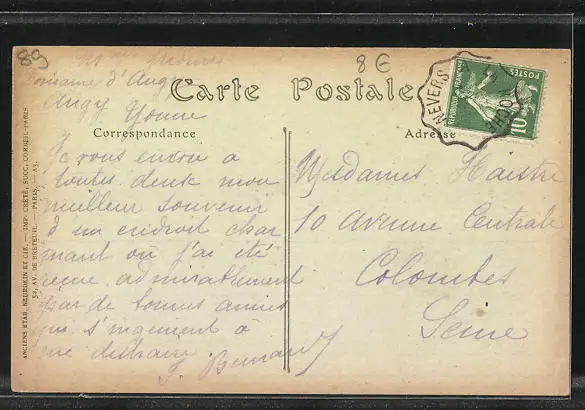 89
8 €
Domaine d'Augy
Augy Yonne
Carte Postale
Correspondance
Adresse
NEVERS
REPUBLIQUE FRANÇAISE
10
Je vous envoie a
toutes deux mon
meilleur souvenir
d'un endroit char
mant où j'ai été
reçue admirablement
par de bonnes amies
qui s'ingenient à
me distraire.
Mesdames Haistre
10 Avenue Centrale
Colombes
Seine
ANCIENS ETAB. NEURDEIN ET CIE. — IMP. CRÉTÉ, SUCC, CORBEIL-PARIS
52, AV. DE BRETEUIL. — PARIS.